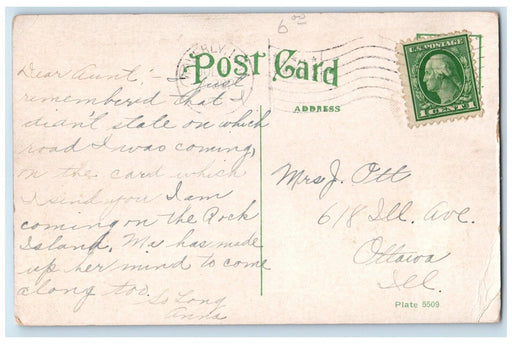 6 00
U.S. POSTAGE
1 CENT 1
POST CARD
ADDRESS
Dear Aunt:- I just
remembered that I
didn't state on which
road I was coming,
on the card which
I send you I am
coming on the Rock
Island. Ma has made
up her mind to come
along too.
So Long
Anna
Mrs J. Ott
618 Ill. Ave.
Ottawa
Ill.
Plate 5509